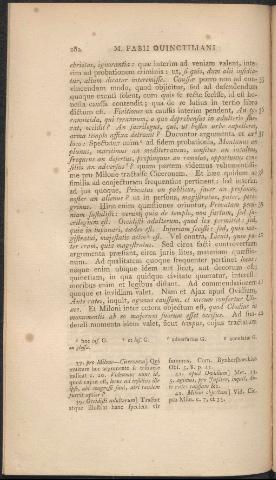 282 M. FABII QUINCTILIANI
ebrietas, ignorantia: quae interim ad veniam valent, inte-
rim ad probationem criminis: ut, si quis, dum alii insidia-
tur, alium dicatur interemisse. Caussae porro non ad con-
vincendum modo, quod objicitur, sed ad defendendum
quoque excuti solent, cum quis se recte fecisse, id est ho-
nesta caussa contendit; qua de re latius in tertio libro
dictum est. Finitionis ex caussis interim pendent, An
rannicida, qui tyrannum, a quo deprehensus in adulterio fue-
rat, occidit? An sacrilegus, qui, ut hostes urbe expelleret,
arma templo affixa detraxit? Ducuntur argumenta et ex
loco: Spectatur enim ad fidem probationis, Montanus an
planus, maritimus an mediterraneus, consitus an incultus,
frequens an desertus, propinquus an remotus, opportunus con-
siliis an adversus? quam partem videmus vehementissi-
me pro Milone tractasse Ciceronem. Et haec quidem ac
similia ad conjecturam frequentius pertinent: sed interim
ad jus quoque, Privatus an publicus, sacer an profanus,
noster an alienus? ut in persona, magistratus, pater, pere-
grinus. Hinc enim quaestiones oriuntur, Privatam pecu-
niam sustulisti: verum quia de templo, non furtum, sed sa-
crilegium est. Occidisti adulterum, quod lex permittit: sed,
quia in lupanari, caedes est. Injuriam fecisti: sed, quia ma-
gistratui, majestatis actio est. Vel contra, Licuit, quia pa-
ter eram, quia magistratus. Sed circa facti controversiam
argumenta praestant, circa juris lites, materiam quaestio-
num. Ad qualitatem quoque frequenter pertinet locus:
neque enim ubique idem aut licet, aut decorum est:
quinetiam, in qua quidque civitate quaeratur, interest:
moribus enim et legibus distant. Ad commendationem
quoque et invidiam valet. Nam et Ajax apud Ovidium,
Ante rates, inquit, agimus caussam, et mecum confertur Ulys-
ses. Et Miloni inter cetera objectum est, quod Clodius in
monumentis ab eo majorum suorum esset occisus. Ad sua-
dendi momenta idem valet, sicut tempus, cujus tractatum
37. pro Milone—Ciceronem]
indicat c. 20.
39. Occidisti adulterum]
40. apud Ovidium] Met. 13.
41. Miloni objectum] Vid. Cic.
pro Mil. c. 7.